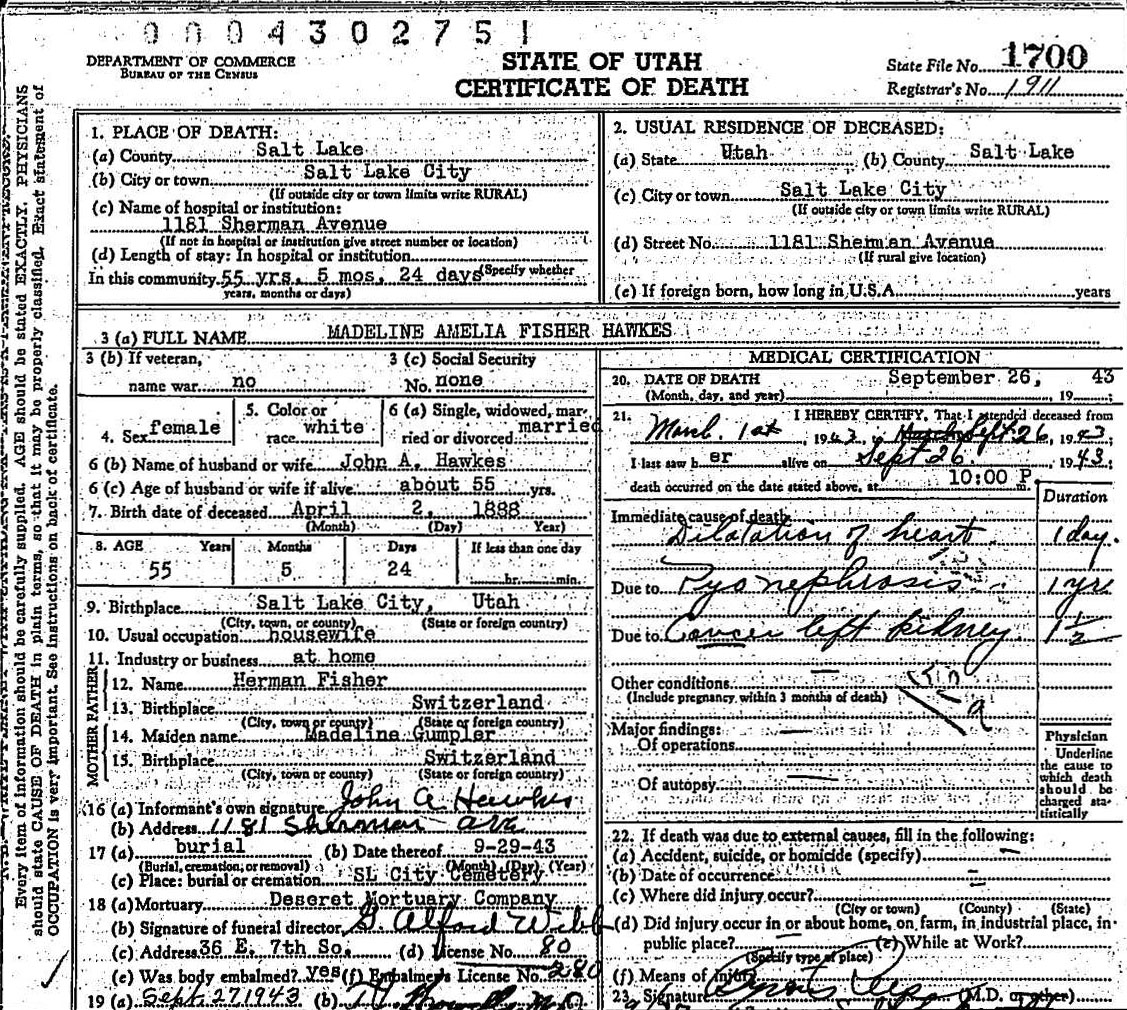 0004302751
DEPARTMENT OF COMMERCE
BUREAU OF THE CENSUS
STATE OF UTAH
CERTIFICATE OF DEATH
State File No. 1700
Registrar's No. 1911
Every item of information should be carefully supplied. AGE should be stated EXACTLY. PHYSICIANS
should state CAUSE OF DEATH in plain terms, so that it may be properly classified. Exact statement of
OCCUPATION is very important. See instructions on back of certificate.
1. PLACE OF DEATH:
(a) County Salt Lake
(b) City or town Salt Lake City
(If outside city or town limits write RURAL)
(c) Name of hospital or institution:
1181 Sherman Avenue
(If not in hospital or institution give street number or location)
(d) Length of stay: In hospital or institution
In this community 55 yrs. 5 mos. 24 days (Specify whether
years, months or days)
2. USUAL RESIDENCE OF DECEASED:
(a) State Utah (b) County Salt Lake
(c) City or town Salt Lake City
(If outside city or town limits write RURAL)
(d) Street No. 1181 Sherman Avenue
(If rural give location)
(e) If foreign born, how long in U.S.A. years
3 (a) FULL NAME MADELINE AMELIA FISHER HAWKES
3 (b) If veteran,
name war no
3 (c) Social Security
No. none
4. Sex female
5. Color or
race white
6 (a) Single, widowed, mar-
ried or divorced married
6 (b) Name of husband or wife John A. Hawkes
6 (c) Age of husband or wife if alive about 55 yrs.
7. Birth date of deceased April 2, 1888
(Month) (Day) Year)
8. AGE Years Months Days If less than one day
55 5 24 hr. min.
9. Birthplace Salt Lake City, Utah
(City, town, or county) (State or foreign country)
10. Usual occupation housewife
11. Industry or business at home
FATHER
12. Name Herman Fisher
13. Birthplace Switzerland
(City, town or county) (State or foreign country)
MOTHER
14. Maiden name Madeline Gumpler
15. Birthplace Switzerland
(City, town or county) (State or foreign country)
16 (a) Informant's own signature John A Hawkes
(b) Address 1181 Sherman ave
17 (a) burial (b) Date thereof 9-29-43
(Burial, cremation, or removal) (Month) (Day) (Year)
(c) Place: burial or cremation SL City Cemetery
18 (a) Mortuary Deseret Mortuary Company
(b) Signature of funeral director G. Alford Webb
(c) Address 36 E. 7th So. (d) License No. 80
(e) Was body embalmed? yes (f) Embalmer's License No. 280
19 (a) Sept. 27 1943 (b)
MEDICAL CERTIFICATION
20. DATE OF DEATH September 26, 43
(Month, day, and year) , 19 ;
21. I HEREBY CERTIFY, That I attended deceased from
March. 1st , 1943, Sept 26, 1943
I last saw her alive on Sept 26 1943
death occurred on the date stated above, at 10:00 P. m.
Duration
Immediate cause of death
Dilatation of heart 1 day.
Due to Pyonephrosis 1 yr
Due to Cancer left kidney 1 1/2
Other conditions —
(Include pregnancy within 3 months of death)
Major findings:
Of operations —
Of autopsy —
Physician
Underline
the cause to
which death
should be
charged sta-
tistically
22. If death was due to external causes, fill in the following:
(a) Accident, suicide, or homicide (specify)
(b) Date of occurrence
(c) Where did injury occur?
(City or town) (County) (State)
(d) Did injury occur in or about home, on farm, in industrial place, in
public place? (e) While at Work?
(Specify type of place)
(f) Means of Injury
23. Signature (M.D. or other)